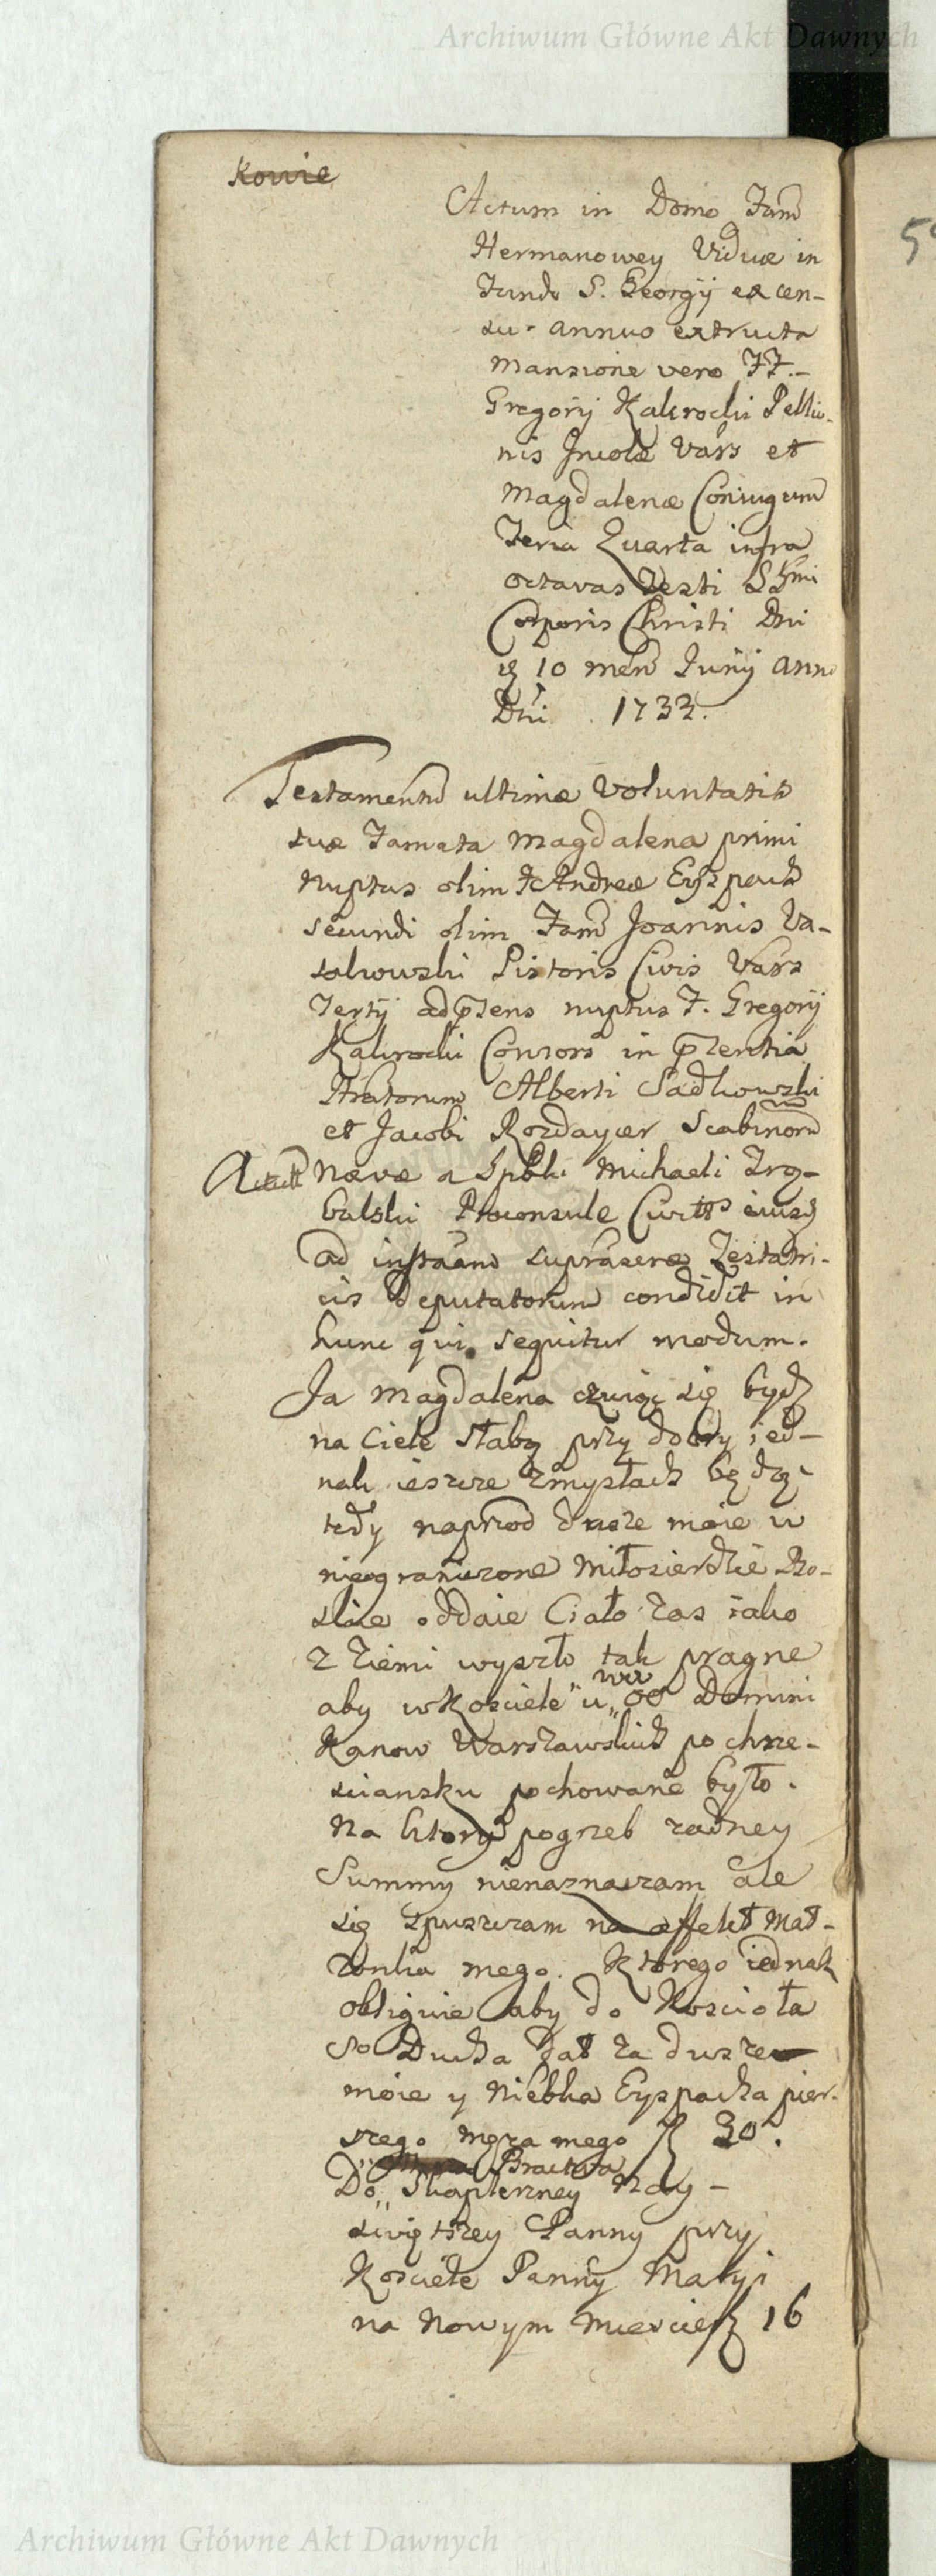 Archiwum Główne Akt Dawnych
Kowie
Actum in Domo Famd
Hermanowey Viduæ in
Fundo S. Georgÿ ex cen-
su annuo extructa
Mansione vero FF.-
Gregorÿ Kakrocki Pellio-
nis Incolæ Vars et
Magdalenæ Coniugum
Feria Quarta infra
octavas Festi SSmi
Corporis Christi Dni
10 mens Junÿ Anno
Dni 1733.
Testamentū ultimæ Voluntatis
suæ Famata Magdalena primi
Nuptus olim Andreæ Eyspach
secundi olim Famd Joannis Va-
sakowski Pistoris Civis Vars
Tertÿ ad pzens nuptus F. Gregorÿ
Kakrocki Consors in pzentia
Hratorum Alberti Sadkowski
et Jacobi Rozdayczer Scabinorū
Novæ a Spbli Michaeli Trę-
balski Proconsule eiusq
ad instaām suprascræ Testatri-
cis Deputatorum condidit in
hunc qui sequitur modum.
Ja Magdalena czuiąc się bydz
na Ciele słabą przy dobry ied-
nak ieszcze Zmysłach będąc
tedy naprzod dusze moie w
nieograniczone Miłosierdzie Bo-
skie oddaie Ciało zas iako
z Ziemi wyszło tak pragne
aby w Kosciele u WW OO Domini
Kanow Warszawskich po chrze-
sciansku pochowane było.
Na ktory pogrzeb zadney
Summy nienaznaczam ale
się spuszczam na affekt Mał-
zonka mego. Ktorego iednak
obliguie aby do Koscioła
So Ducha dał za dusze
moie y Niebka Eyspacha pier-
szego męza mego f 30.
Bractwa
Do Skaplerzney Nay-
swiętszey Panny przy
Kosciele Panny Maryi
na Nowym Miescie f 16
Archiwum Główne Akt Dawnych